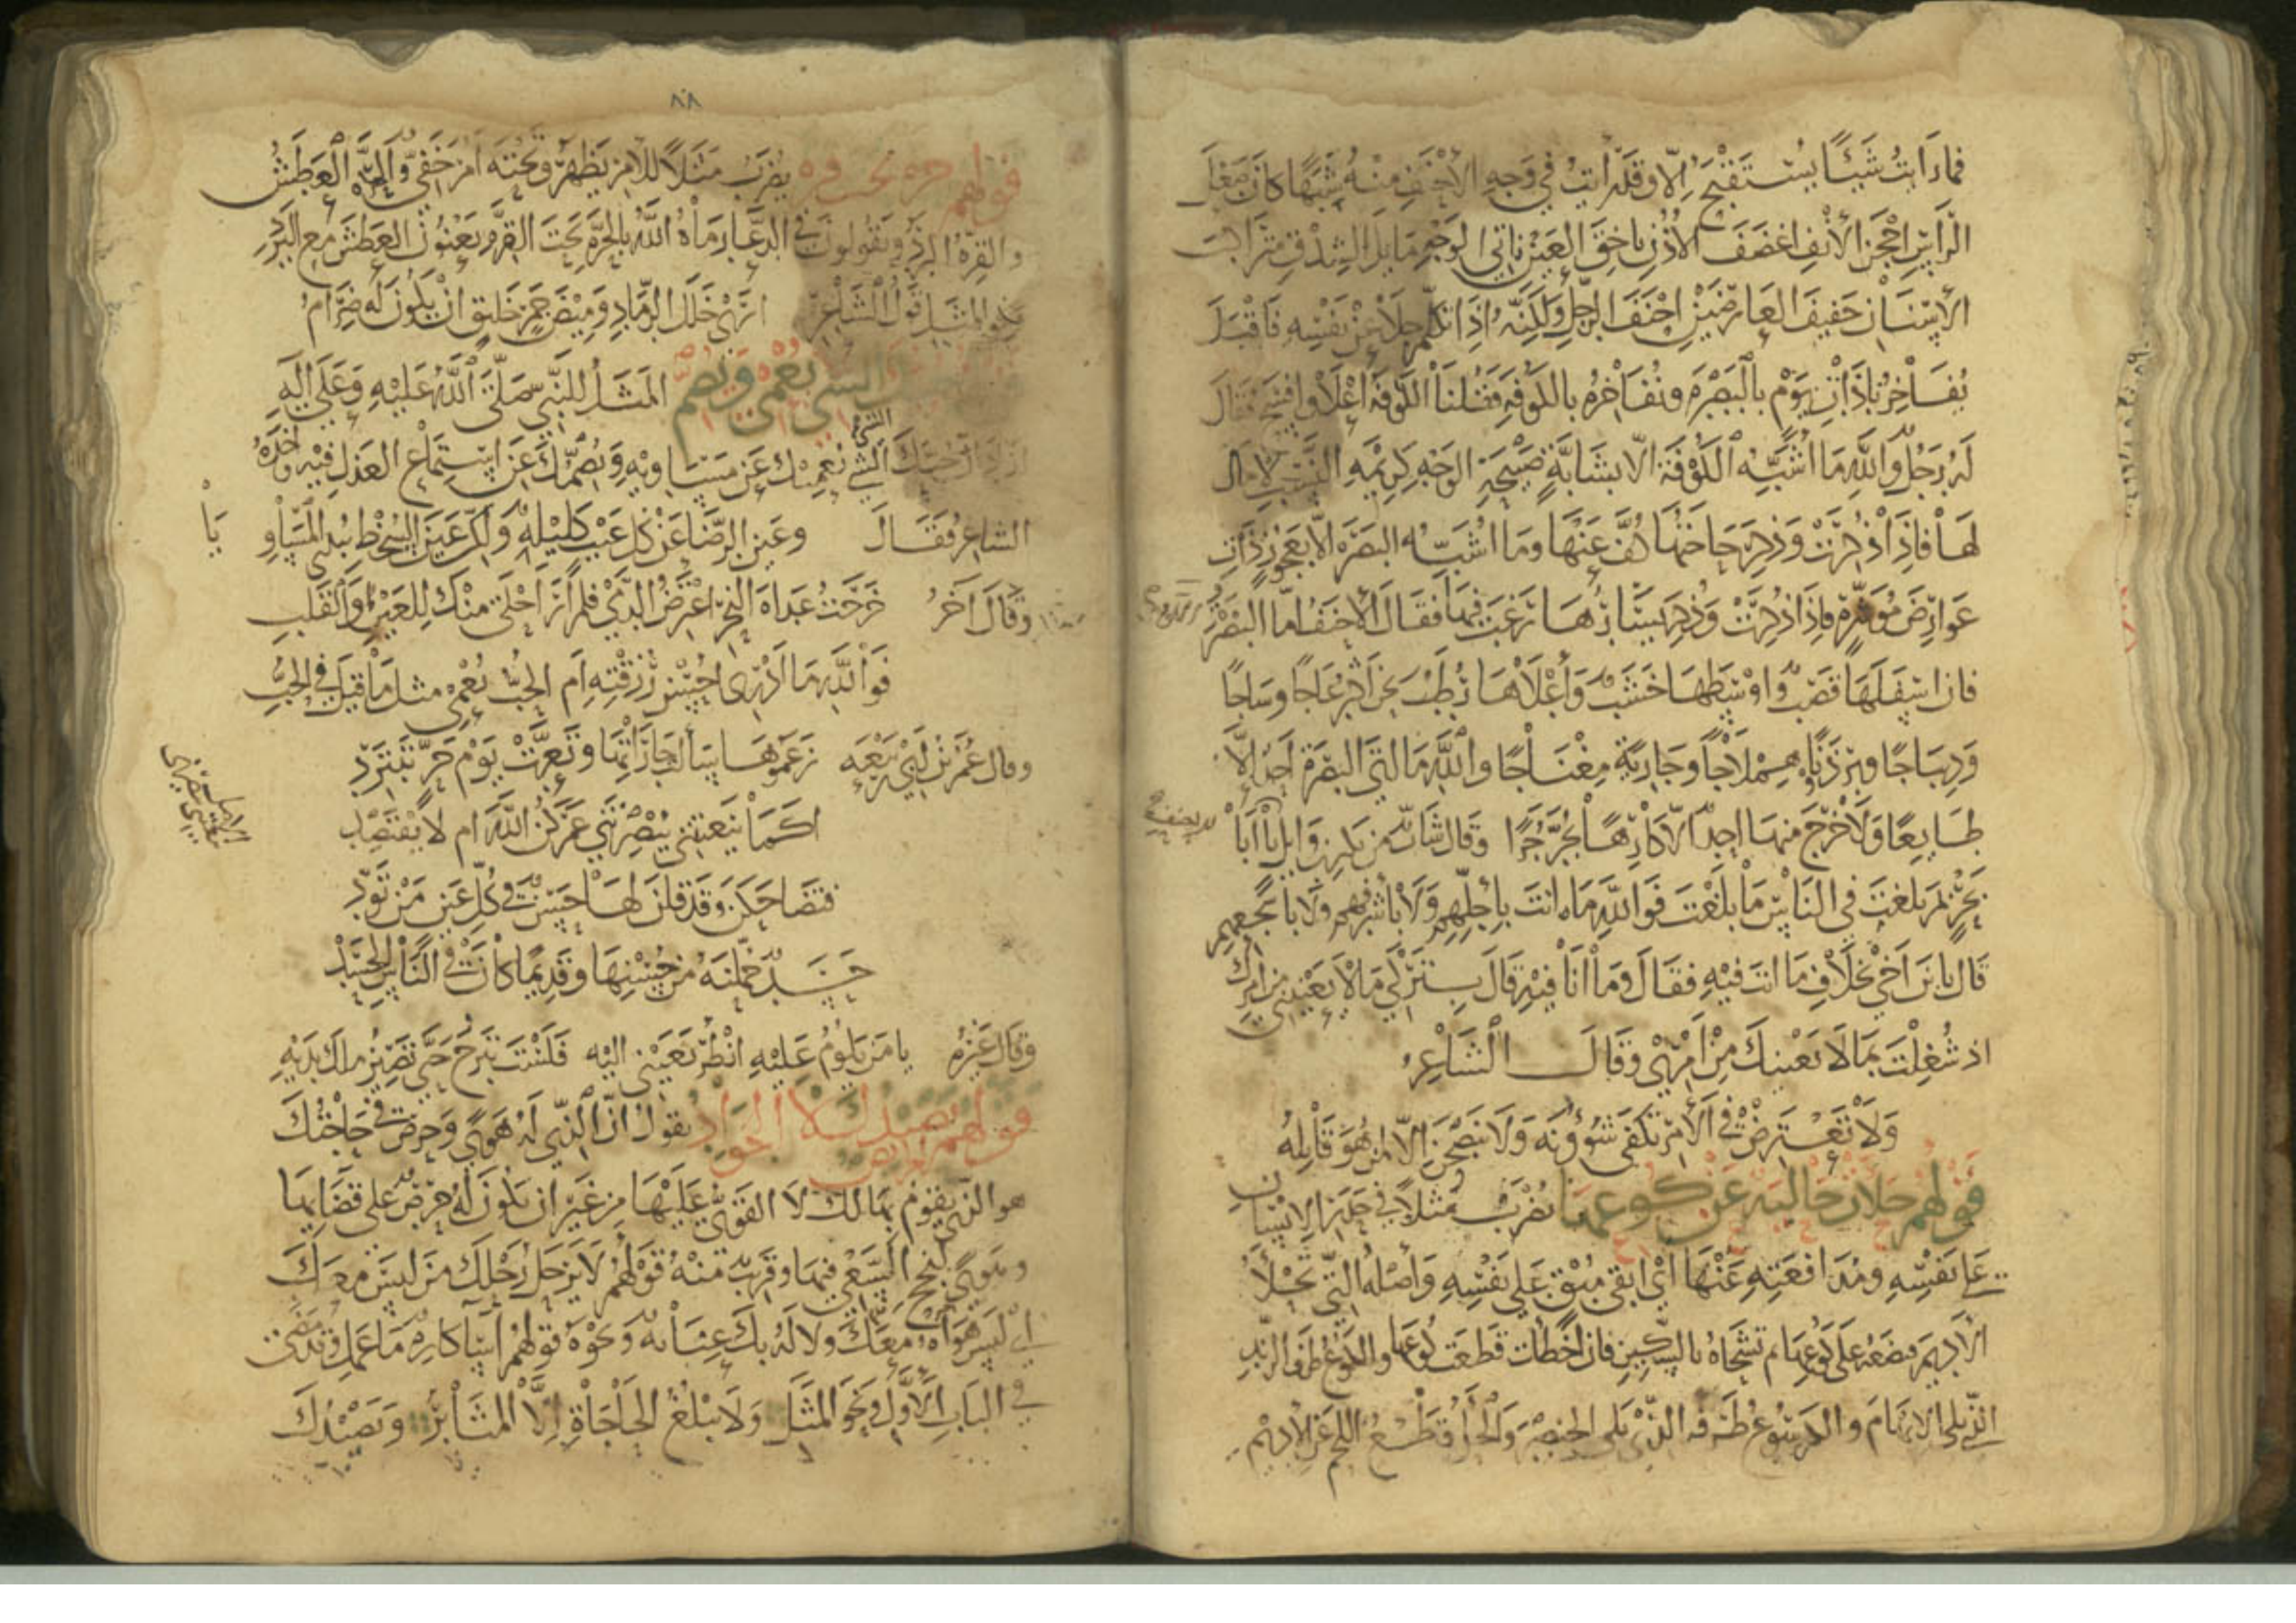 فما رَأيتُ شَيئًا يُستَقبَحُ إلّا وقد رَأيتُ في وَجهِ الأحنَفِ منهُ شَبَهًا كانَ صَعْلَ
الرَّأسِ أحجَنَ الأنفِ أغضَفَ الأُذُنِ باخِقَ العَينِ ناتي الوَجهِ مايلَ الشِدقِ متراكبَ
الأسنانِ خفيفَ العارضَينِ أحنَفَ الرِّجلِ ولكنّه إذا تكلّم جلا عن نفسِه فأقبَلَ
يُفاخِرُنا ذاتَ يَومٍ بالبَصرَةِ ونُفاخِرُه بالكوفَةِ فقُلنا الكوفَةُ أعلا وافسَح فقالَ
لَهُ رَجُلٌ واللهِ ما أُشَبِّهُ الكُوفَةَ الّا بشابَّةٍ صَبيحَةِ الوَجهِ كريمَةِ النَّسَبِ لا مال
لها فإذا ذُكِرَتْ وذُكِرَ حاجَتُها كُفَّ عَنها وما أُشَبِّه البَصرَةَ الّا بعَجوزٍ ذاتِ
عَوارِضَ مُوسِرَةٍ فإذا ذُكِرَتْ وَذُكِرَ يَسَارُها رُغِبَ فيها فَقالَ الأحنَفُ امّا البَصْرَةُ
فان اسفَلَها قَصَبٌ واوْسَطَها خَشَبٌ وَأَعْلاها رُطَبٌ نحن اكثر عاجًا وساجًا
وَدِيباجًا وبِرْذَوْنًا هِمْلاجًا وجَارِيَةً مِغْنَاجًا والله ما اتي البَصْرَةَ احد إلّا
طَايِعًا وَلَا خْرَجَ منها احدٌ الّا كارِهًا يُجَرُّ جَرًّا وقال شابٌّ من بكر بن وايل يا أبا
بَحْرٍ بمَ بلغتَ في النّاسِ ما بلَغْتَ فَواللهِ ما انتَ باجلِّهم وَلَا بأشرفِهم ولا باشجعِهم
قال يا بن اخي بخلافِ ما انت فيهِ فقالَ وما أنا فيهِ قالَ بتركي ما لا يَعْنيني من امرك
اذ شُغِلْتَ بما لَا يَعْنيكَ مِنْ أمري وقالَ الشّاعِرُ
وَلا تَعْتَرِضْ في الأمر تُكفى شُؤونَه وَلا تَنصَحَنْ إلّا لمن هُوَ قَابِلُهْ
قولهم حَلأتْ حَالِئةٌ عَنْ كُوعِهَا يُضْرَبُ مثلاً في حَذَرِ الإنسان
على نَفْسِهِ ومُدافَعَتِهِ عَنْهَا أي ابقى مُبْقٍ على نَفْسِه وأصلُه التي تَحْلأُ
الأديمَ فتضعُه على كُوعِها ثم تَسْحَاهُ بالسِّكينِ فان أخطأت قَطَعَت كُوعَها والكوع طرف الزند
الّذي يلي الابهامَ والكرسوع طرفه الذي يلي الخنصر والحَلأُ قَطْعُ اللحم عن الأديم
٨٨
قولهم حِرّة تحت قِرّه يُضرَبُ مَثَلًا للأمر يَظهَرُ وتحتَه أمر خَفِيٌّ والحِرّة العَطَشُ
والقِرّةُ البردُ ويقولونَ في الدعاءِ رَماهُ اللهُ بالحِرّةِ تحتَ القِرّةِ يَعْنُونَ العَطَشَ مع البَرْدِ
ونحو المثل قول الشاعر أرى خَلَلَ الرَّمادِ وَمِيضَ جَمْرٍ خَليقٌ انْ يكونَ لَهُ ضِرَامُ
الشي يُعْمي ويُصِمّ المثلُ للنبيّ صَلّى اللهُ عَليهِ وَعَلى آلهِ
حبّكَ الشي يُعميكَ عن مساويهِ ويُصِمُّكَ عن استِماعِ العذلِ فيه وأخذه
الشاعرُ فقالَ وعين الرّضا عَنْ كل عَيْبٍ كليلةٌ ولكنّ عينَ السُّخْطِ تُبدي المسَاوِيَا
وقال آخرُ خرجتُ غداةَ النَّحْرِ أعْترضُ الدُّمَى فلم أرَ أحْلى منكَ للعينِ والقَلبِ
فواللهِ ما أدري أحُسْنٌ رُزِقْتِه أم الحبُّ يُعْمي مثل ما قيلَ في الحُبِّ
وقال عُمَرُ بنُ أبي ربيعَه زعموها سألت جاراتِها وتعرّت يوم حَرٍّ تَبْتَرِدْ
أكما يَنعتُني تُبْصِرْنَني عَمْرَكُنّ اللهَ أم لا يَقْتَصِدْ
فتضاحكنَ وقد قلنَ لها حَسَنٌ في كُلِّ عَينٍ مَنْ تَوَدّ
حَسَدٌ حُمِّلنَه من حُسْنِها وقديمًا كانَ في النّاسِ الحَسَدْ
وقال غيره يا مَن يلومُ عليهِ انْظُر بعَينَيَّ اليه فلستَ تبرحُ حتى تَصِيرَ ملكَ يديه
قولهم لا الجَوَاد يقول انّ الّذي لَهُ هَوىً وحرصٌ في حاجتكَ
هو الذي يقومُ بها لكَ لا القويُّ عليها من غير ان يكونَ لهُ حرصٌ على قضايها
وهوىً لنجح السَّعْي فيها وقريبٌ منهُ قولهم لا يُرَحِّل رَحْلكَ من ليسَ معكَ
أي ليسَ هواهُ معكَ ولا لَهُ بكَ عِنايةٌ ونحوهُ قولهم أساءَ كارهٌ ما عملَ وقد مضى
في البابِ الأوّلِ ونحو المثل ولا يَبْلُغُ الحاجَاتِ إلّا المثابرُ ويَصيدُكَ